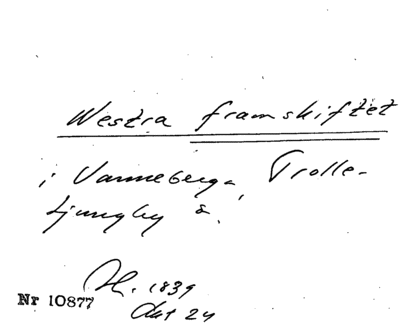 Westra framskiftet
i Vanneberga, Trolle-
Ljungby s.
H. 1839
Akt 24
Nr 10877